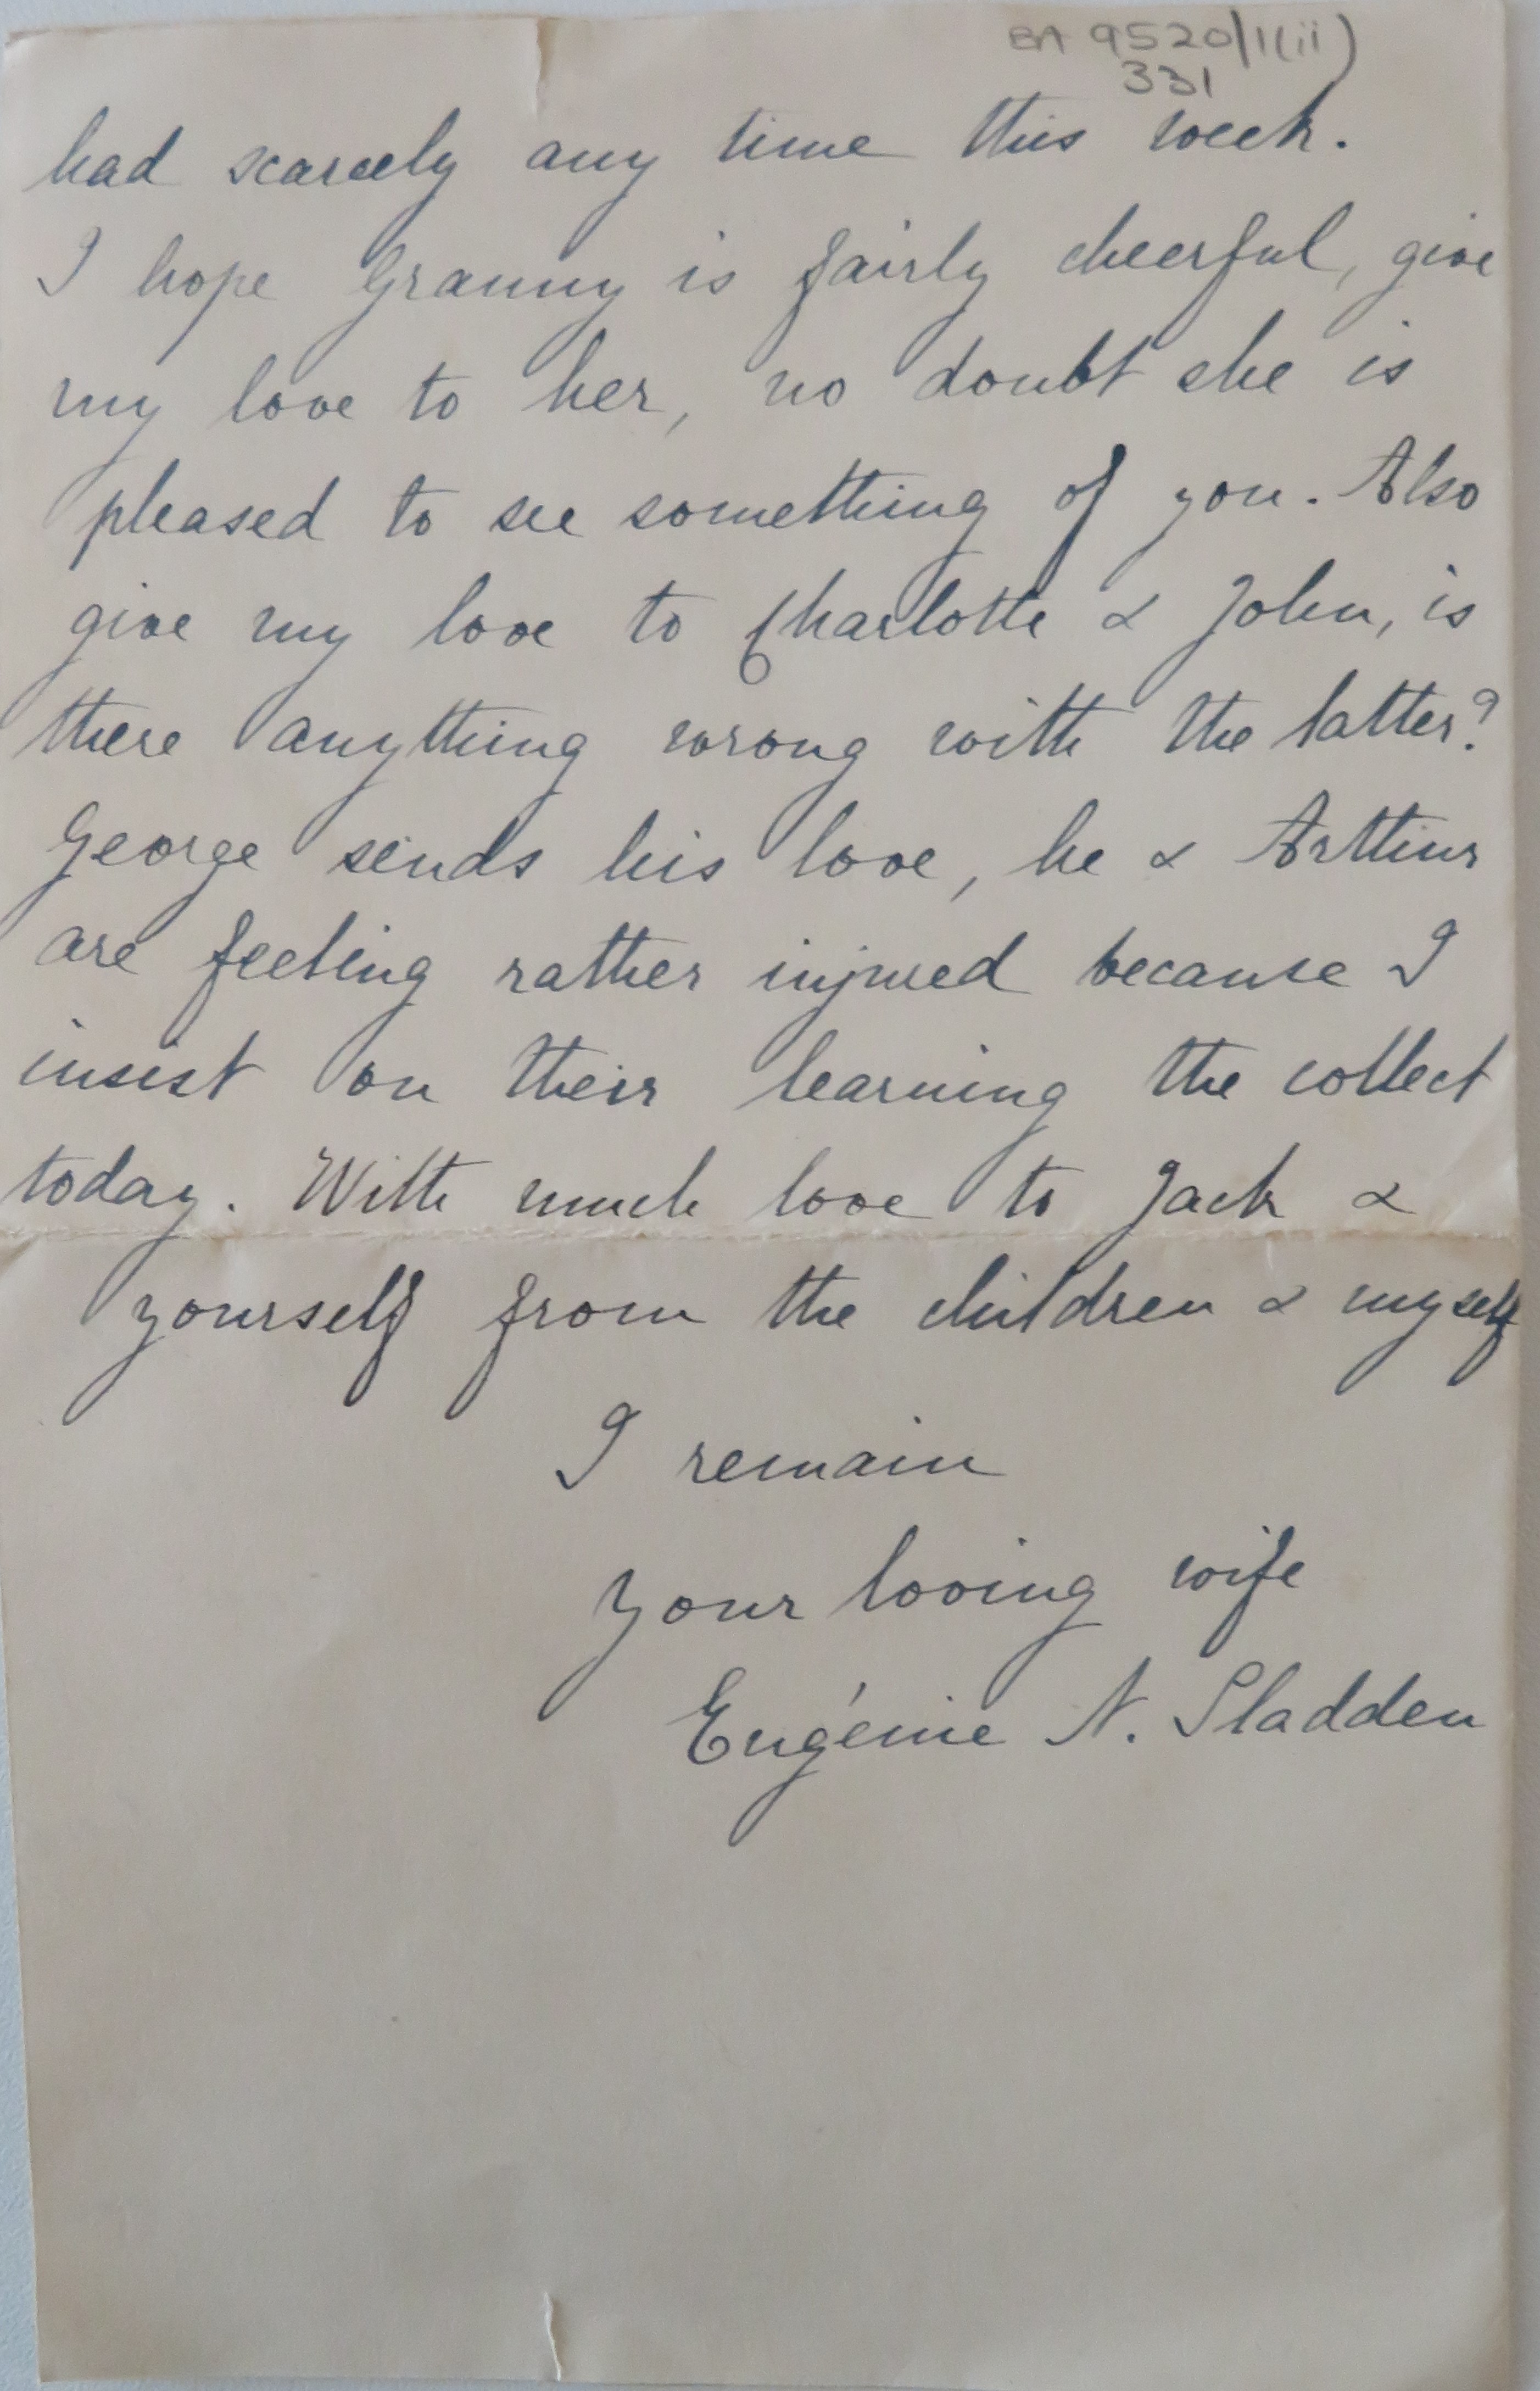 BA 9520/1(ii)
331
had scarcely any time this week.
I hope Granny is fairly cheerful, give
my love to her, no doubt she is
pleased to see something of you. Also
give my love to Charlotte & John, is
there anything wrong with the latter?
George sends his love, he & Arthur
are feeling rather injured because I
insist on their learning the collect
today. With much love to Jack &
yourself from the children & myself
I remain
your loving wife
Eugénie N. Sladden